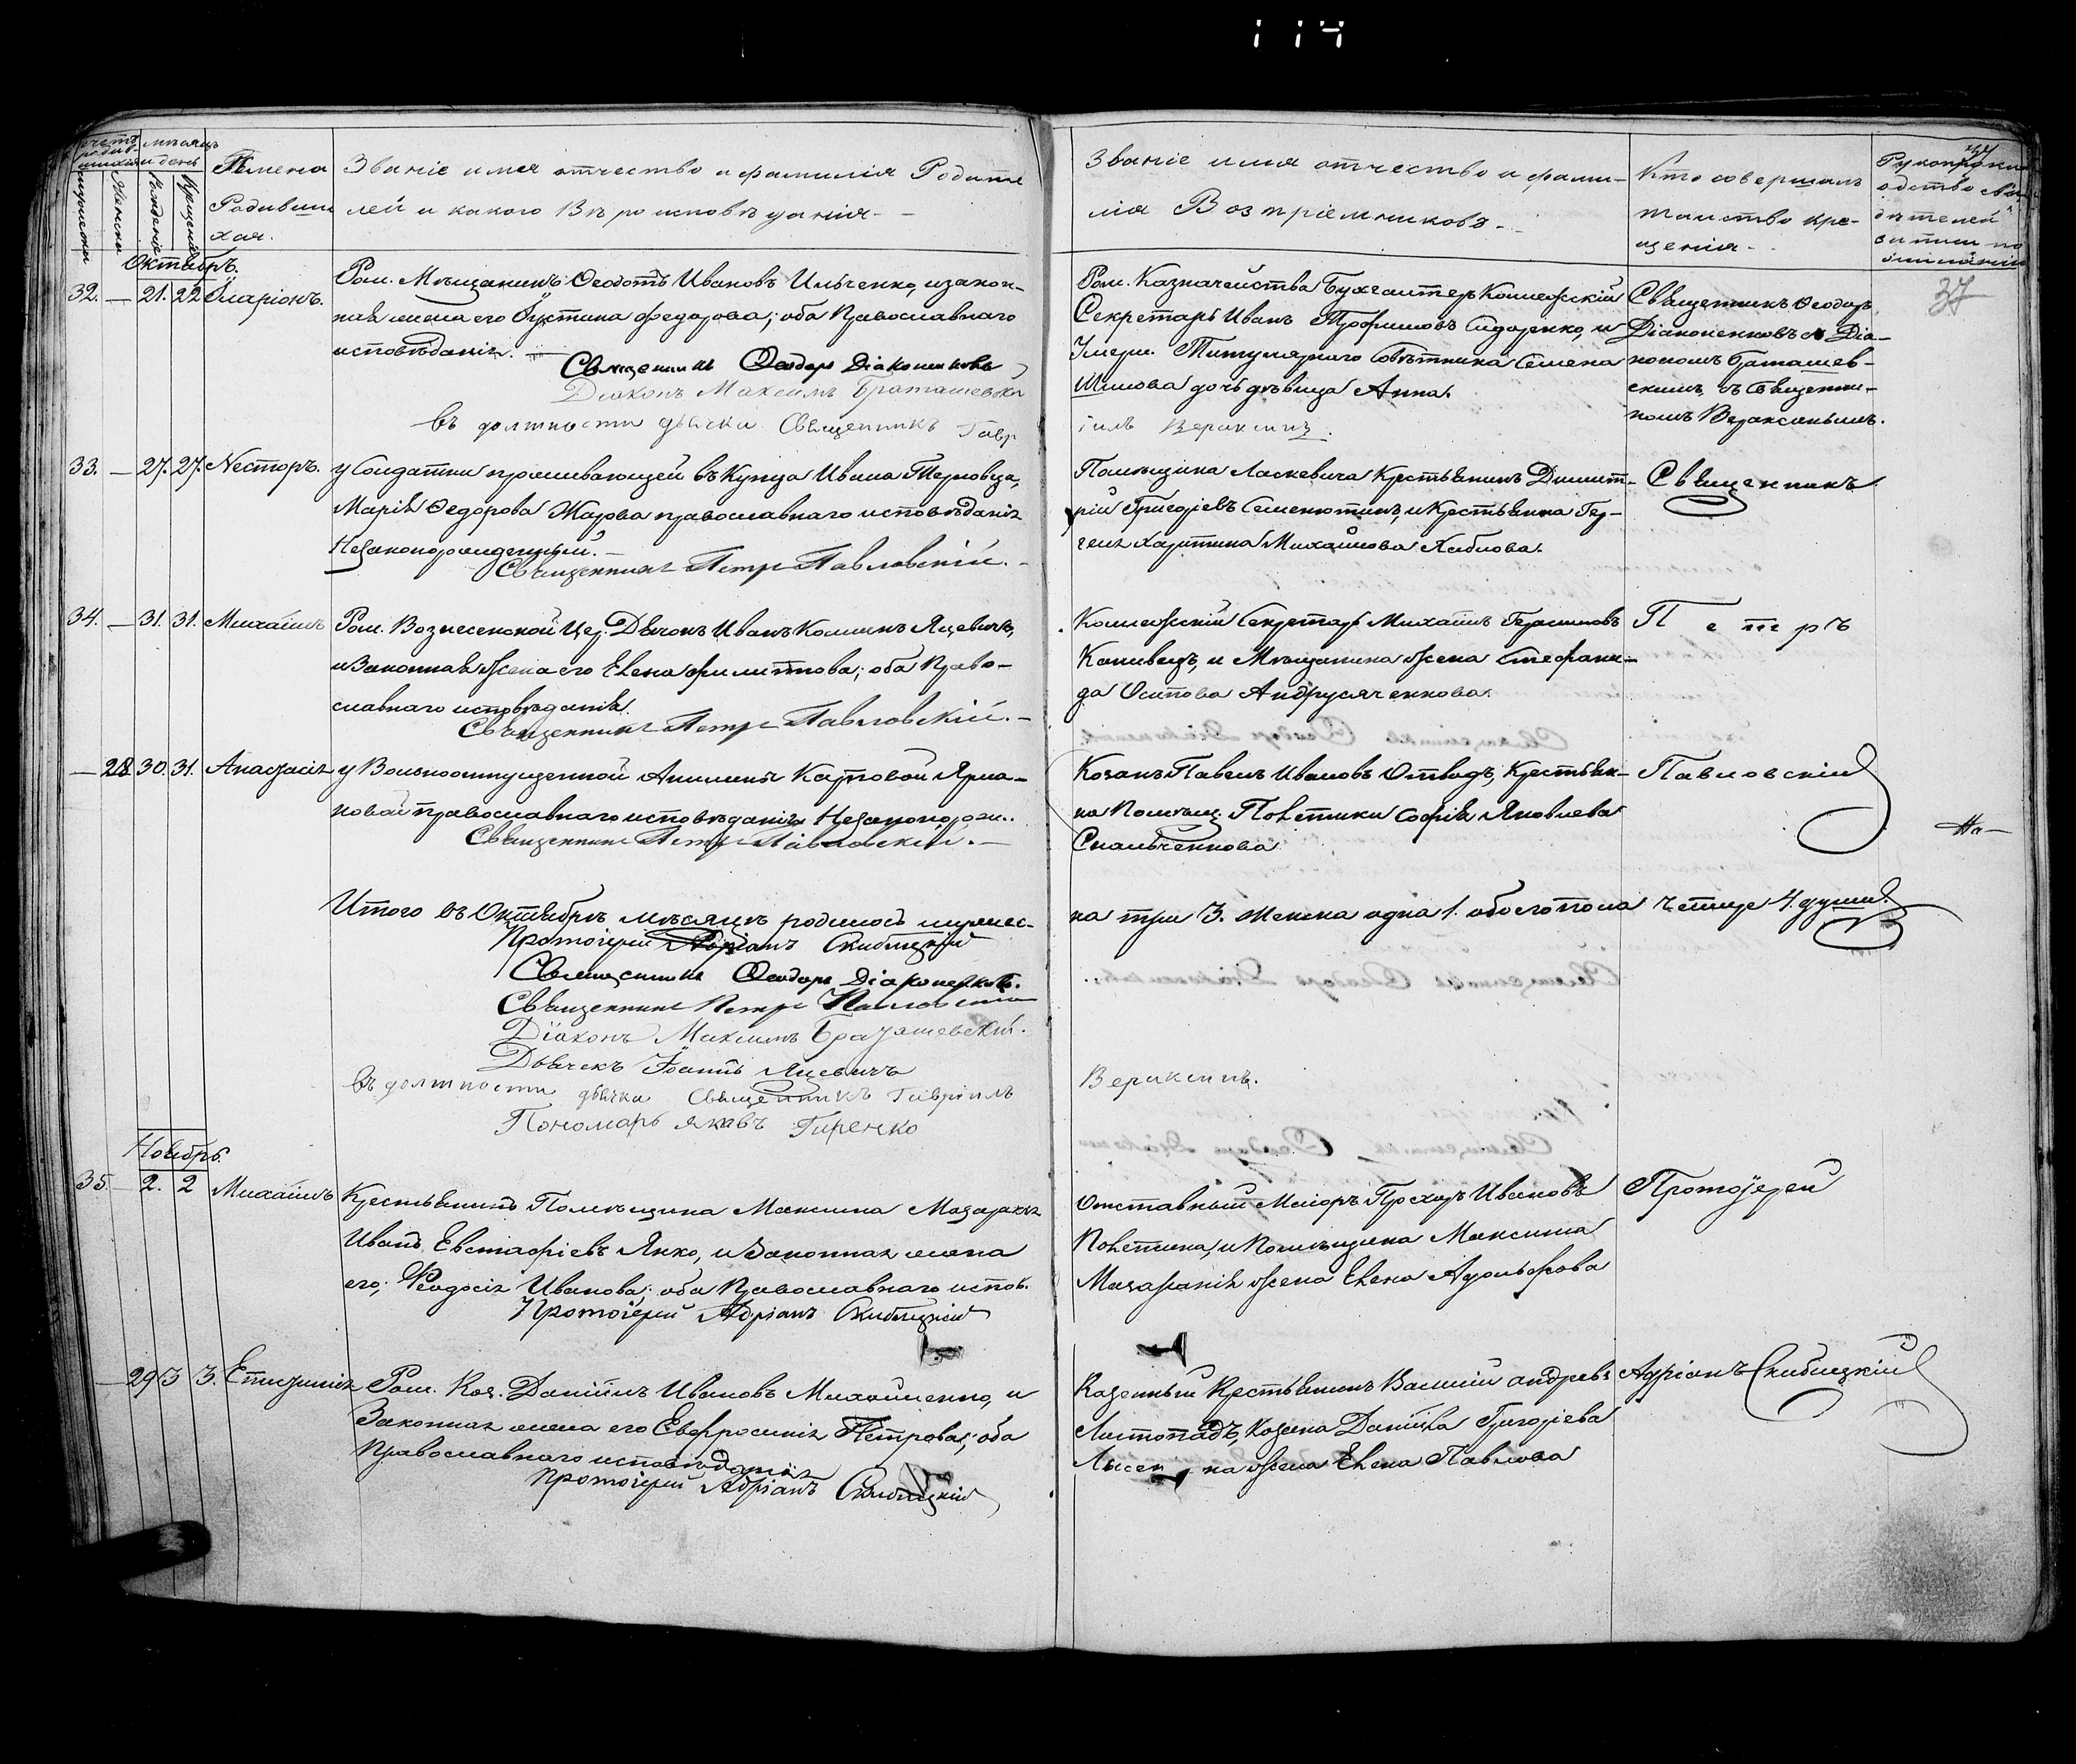 114
счетъ родив-
шихся
мѣсяцъ
и день
мужеска
женска
рожденія
крещенія
Имена
Родивши
хся.
Званіе имя отчество и фамилія Родите
лей и какого Вѣроисповѣданія -
Званіе имя отчество и фами-
лія Воспріемниковъ -
Кто совершалъ
таинство кре-
щенія -
Рукоприкла
одство сви-
дѣтелей
записи по
желанію
37
Октябрь.
32. — 21. 22 Иларіонъ.
Ром. Мѣщанинъ Ѳеодотъ Ивановъ Ильченко, и закон-
ная жена его Іустина Федорова; оба Православнаго
исповѣданія. —
Священникъ Ѳеодоръ Діаконенковъ
Діаконъ Максимъ Браташевскі
въ должности дьячка Священникъ Гавр
іилъ Вераксинъ.
Ром. Казначейства Бухгалтеръ Коллежскій
Секретарь Иванъ Трофимовъ Сидоренко, и
Умерш. Титулярнаго Совѣтника Семена
Шилова дочь дѣвица Анна.
Священникъ Ѳеодоръ
Діаконенковъ съ Діа-
кономъ Браташев-
скимъ, съ Священни-
комъ Вераксинымъ.
33. — 27. 27. Несторъ.
у Солдатки проживающей въ Купца Ивана Терновца,
Марія Ѳедорова Жарова православнаго исповѣданія
Незаконорожденный. —
Священникъ Петръ Павловскій. -
Помѣщика Ласкевича Крестьянинъ Димит-
рій Григорьевъ Семенютинъ, и Крестьянка Гер-
Харитина Михайлова Хаблова.
Священникъ
34. — 31. 31. Михаилъ
Ром. Вознесенской Цер. Дьячокъ Иванъ Яцевичъ,
и Законная жена его Елена Филиппова; оба Право-
славнаго исповѣданія.
Священникъ Петръ Павловскій. -
Коллежскій Секретарь Михаилъ Герасимовъ
Канивецъ, и Мѣщанина жена Стефани-
да Осипова Андрусяченкова.
Петръ
— 28. 30. 31. Анастасія
у Вольноотпущенной Акилины Карповой Ярма-
ковой православнаго исповѣданія Незаконорож..
Священникъ Петръ Павловскій. —
Козакъ Павелъ Ивановъ Отводъ, Крестьян-
ка Помѣщ. Полетики Софія Яковлева
Скальченкова
Павловскій
На —
Итого въ Октябрѣ мѣсяцѣ родилось мужес-
ка три 3. женска одна 1. обоего пола четыре 4. души.
Протоіерей Адріанъ Скибицкій
Священникъ Ѳеодоръ Діаконенковъ.
Священникъ Петръ Павловскій
Діаконъ Максимъ Браташевскій.
Дьячекъ Іоаннъ Яцевичъ
въ должности дьячка Священникъ Гавріилъ
Вераксинъ.
Пономарь Яковъ Гиренко
Ноябрь
35. — 2. 2 Михаилъ
Крестьянинъ Помѣщика Максима Мазараки
Иванъ Евстафіевъ Янко, и Законная жена
его, Ѳеодосія Иванова; оба Православнаго испов.
Протоіерей Адріанъ Скибицкій
Отставный Маіоръ Прохоръ Ивановъ
Полетика, и Помѣщика Максима
Мазаракія жена Елена Адольфова
Протоіерей
— 29 3 3. Епистимія
Ром. Коз. Даніилъ Ивановъ Михайленко, и
Законная жена его Евфросинія Петрова; оба
Православнаго исповѣданія
Протоіерей Адріанъ Скибицкій
Казенный Крестьянинъ Василій Андреевъ
Листопадъ, Козака Даніила Григоріева
Лисен ка жена Елена Павлова
Адріанъ Скибицкій